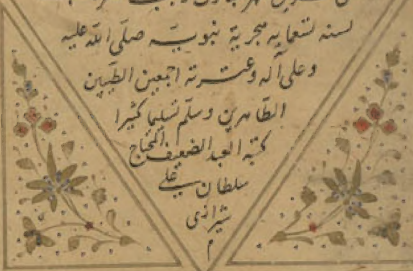 لسنه تسعمايه هجرية نبويه صلى الله عليه
وعلى آله وعترته اجمعين الطيبين
الطاهرين وسلم تسليما كثيرا
كتبه العبد الضعيف المحتاج
سلطان علی
شیرازی
م